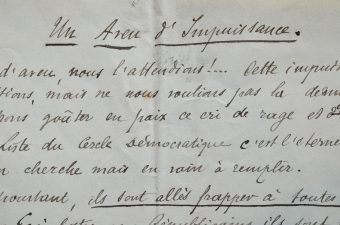 Un Aveu d'Impuissance.
d'aveu, nous l'attendions!.... Cette impuis
tions, mais ne nous voulions pas la deman
ons goûter en paix ce cri de rage et d
liste du Cercle Démocratique c'est l'éterne
on cherche mais en vain à remplir.
pourtant, ils sont allés frapper à toutes
Républicains ils sont